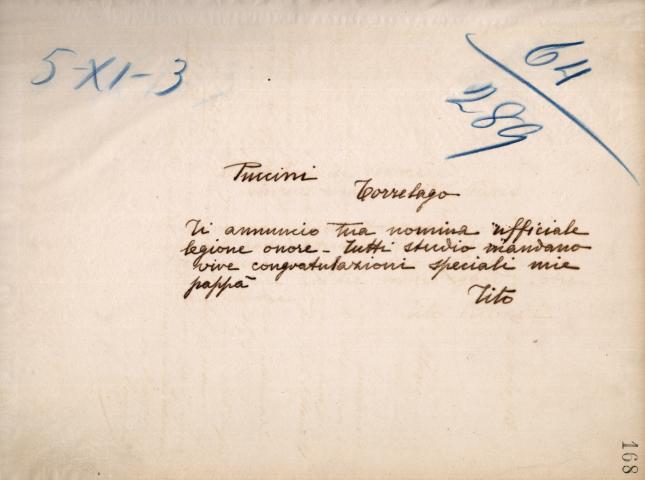 5-XI-3
64
289
Puccini
Torrelago
Ti annuncio tua nomina ufficiale
legione onore - Tutti studio mandano
vive congratulazioni speciali mie
pappà
Tito
168